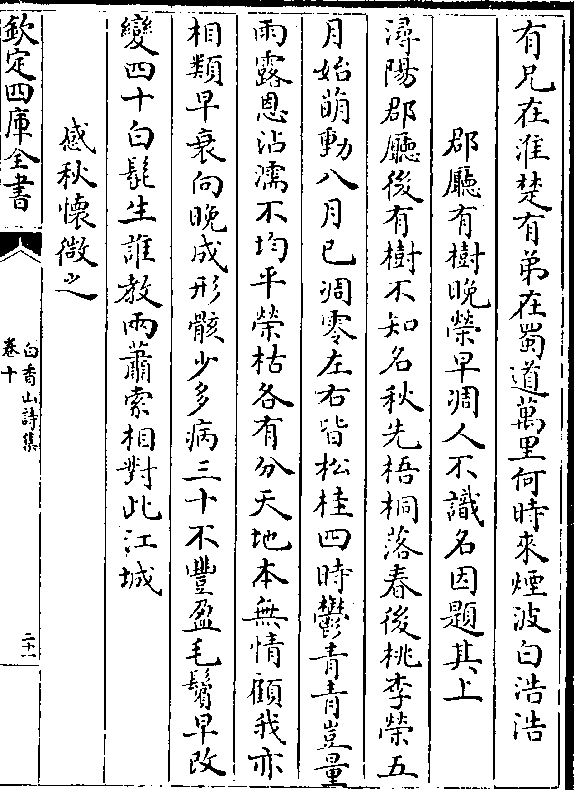 有兄在淮楚有弟在蜀道萬里何時來煙波白浩浩
郡廳有樹晚榮早凋人不識名因題其上
潯陽郡廳後有樹不知名秋先梧桐落春後桃李榮五
月始萌動八月已凋零左右皆松桂四時鬱青青豈量
雨露恩沾濡不均平榮枯各有分天地本無情顧我亦
相類早衰向晚成形骸少多病三十不豐盈毛鬢早改
變四十白髭生誰教兩蕭索相對此江城
感秋懷微之
欽定四庫全書
白香山詩集
卷十
二十一